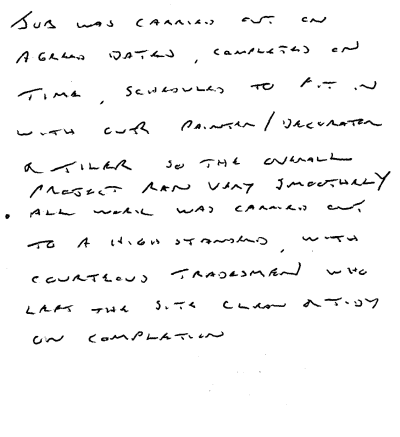 JOB WAS CARRIED OUT ON
AGREED DATES, COMPLETED ON
TIME, SCHEDULED TO FIT IN
WITH OUR PAINTER/DECORATOR
& TILER SO THE OVERALL
PROJECT RAN VERY SMOOTHLY
• ALL WORK WAS CARRIED OUT
TO A HIGH STANDARD, WITH
COURTEOUS TRADESMEN WHO
LEFT THE SITE CLEAN & TIDY
ON COMPLETION